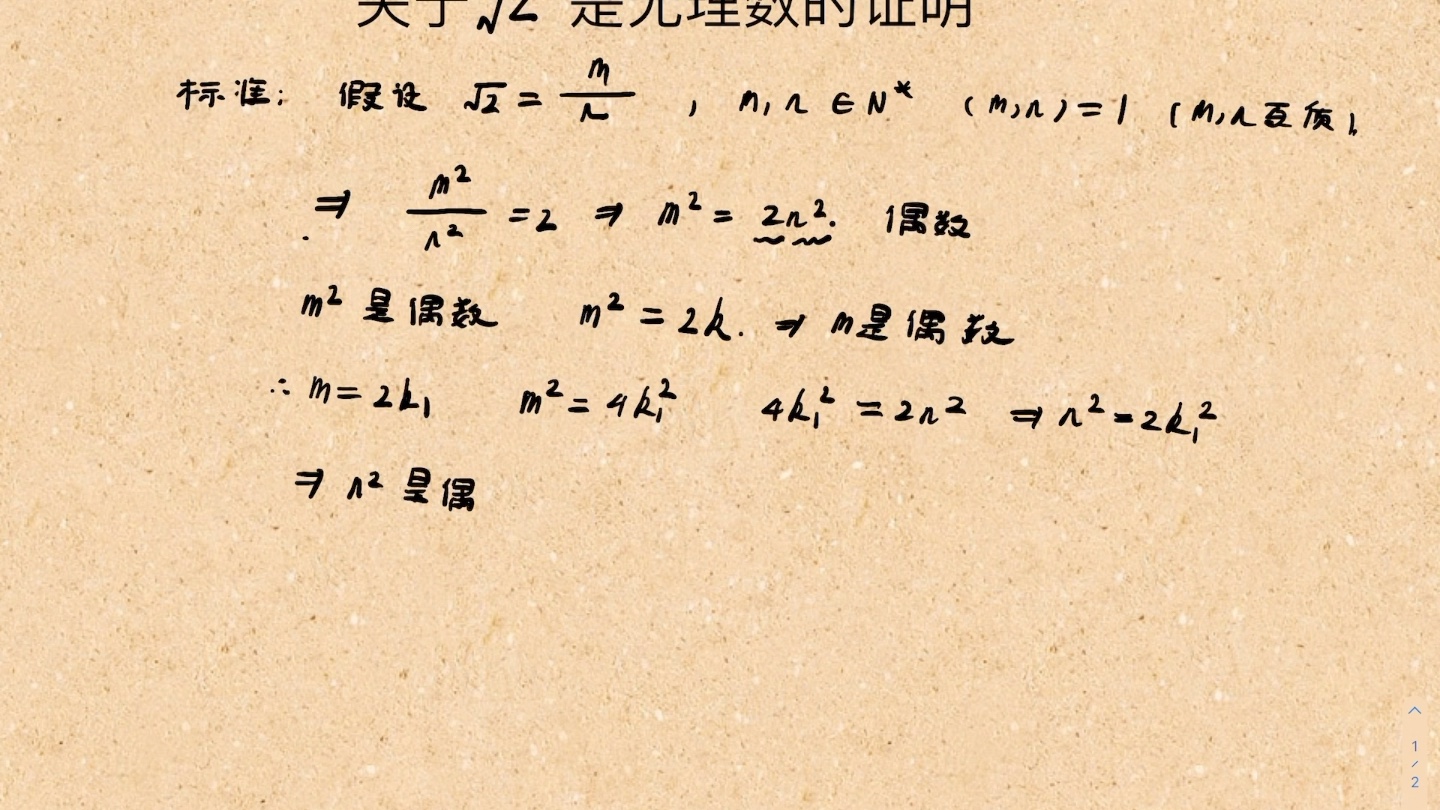 关于√2 是无理数的证明
标准: 假设 √2 = m/n , m, n ∈ N* (m,n)=1 (m,n互质).
⇒ m²/n² = 2 ⇒ m² = 2n². 偶数
m² 是偶数 m² = 2k. ⇒ m是偶数
∴ m = 2k₁ m² = 4k₁² 4k₁² = 2n² ⇒ n² = 2k₁²
⇒ n² 是偶
1
/
2